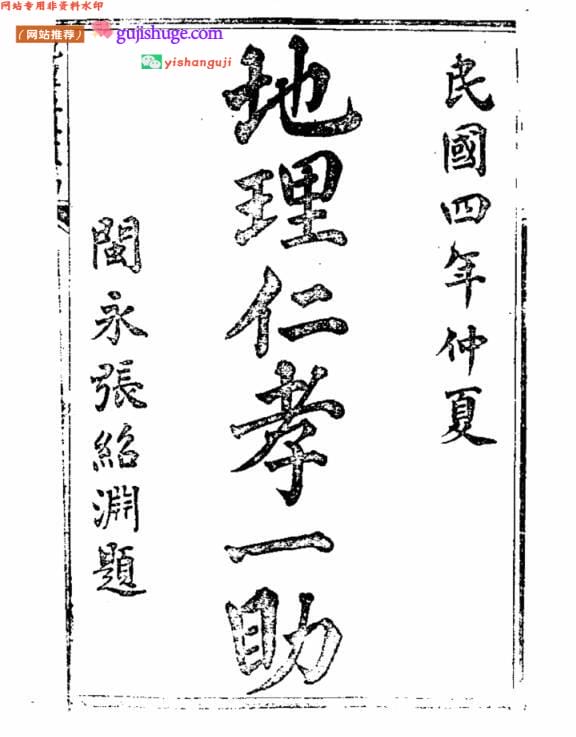 网站专用非资料水印
（网站推荐）
gujishuge.com
yishanguji
民國四年仲夏
地理仁孝一助
閩永張紹淵題